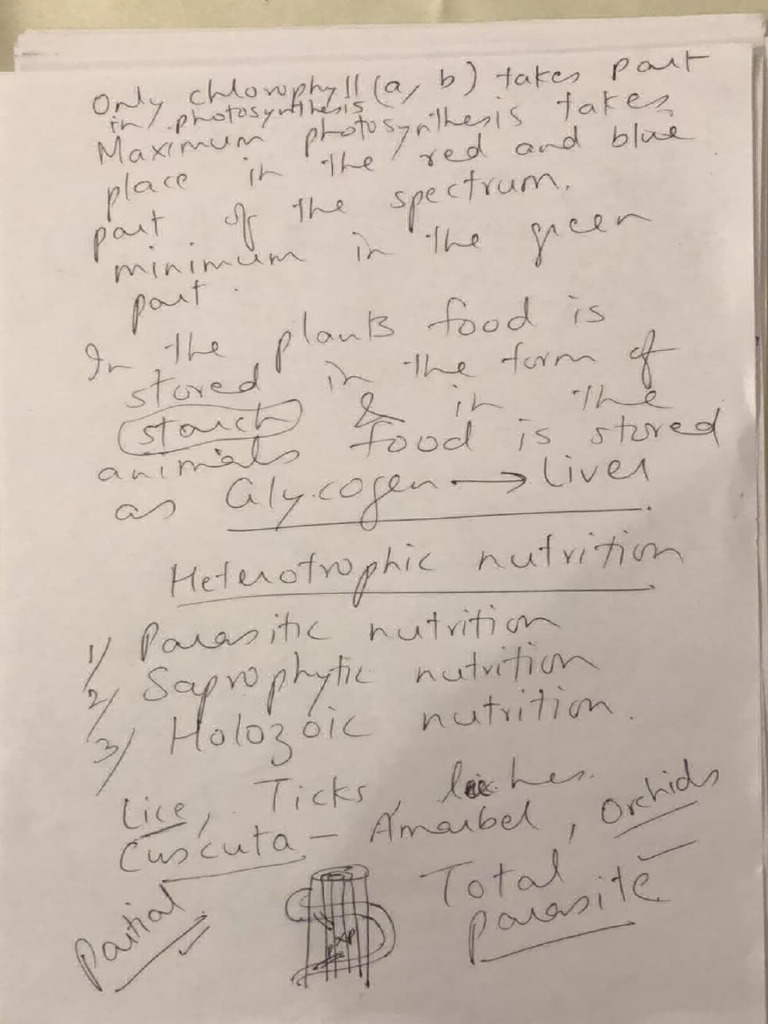 Only chlorophyll (a, b) takes part
in photosynthesis
Maximum photosynthesis takes
place in the red and blue
part of the spectrum.
minimum in the green
part.
In the plants food is
stored in the form of
starch & in the
animals food is stored
as Glycogen → Liver
Heterotrophic nutrition
1) Parasitic nutrition
2) Saprophytic nutrition
3) Holozoic nutrition.
Lice, Ticks, leeches.
Cuscuta – Amarbel, Orchids
Partial
Total
parasite